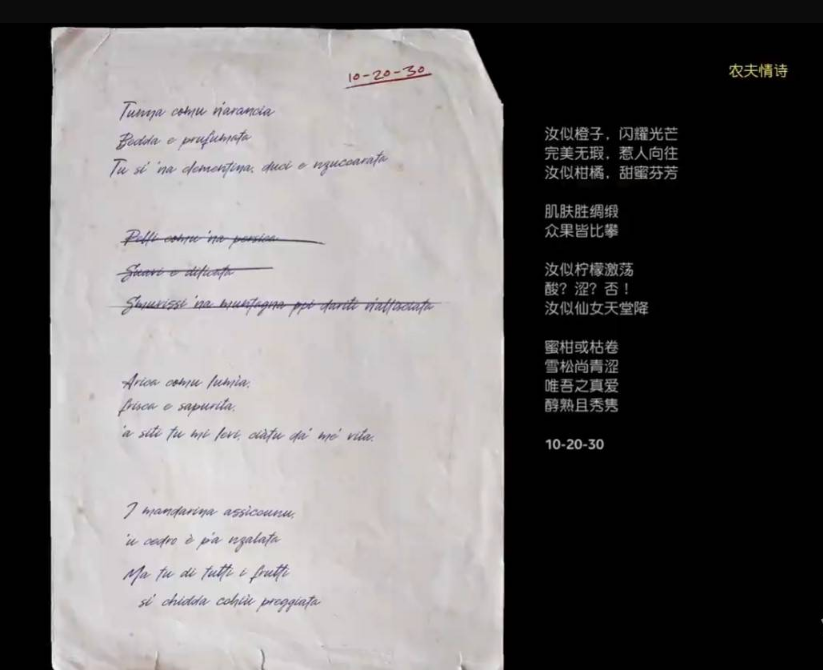 10-20-30
Tunna comu n'arancia
Bedda e profumata
Tu si 'na clementina, duci e nzuccarata
Pelli comu 'na persica
Suavi e dilicata
Smurissi 'na muntagna ppi dariti n'allisciata
Arica comu lumia,
frisca e sapurita,
'a siti tu mi levi, ciàtu da' me' vita.
I mandarina assiccunu,
'u cedro è p'a nzalata
Ma tu di tutti i frutti
si chidda cchiù preggiata
农夫情诗
汝似橙子，闪耀光芒
完美无瑕，惹人向往
汝似柑橘，甜蜜芬芳
肌肤胜绸缎
众果皆比攀
汝似柠檬激荡
酸？涩？否！
汝似仙女天堂降
蜜柑或枯卷
雪松尚青涩
唯吾之真爱
醇熟且秀隽
10-20-30